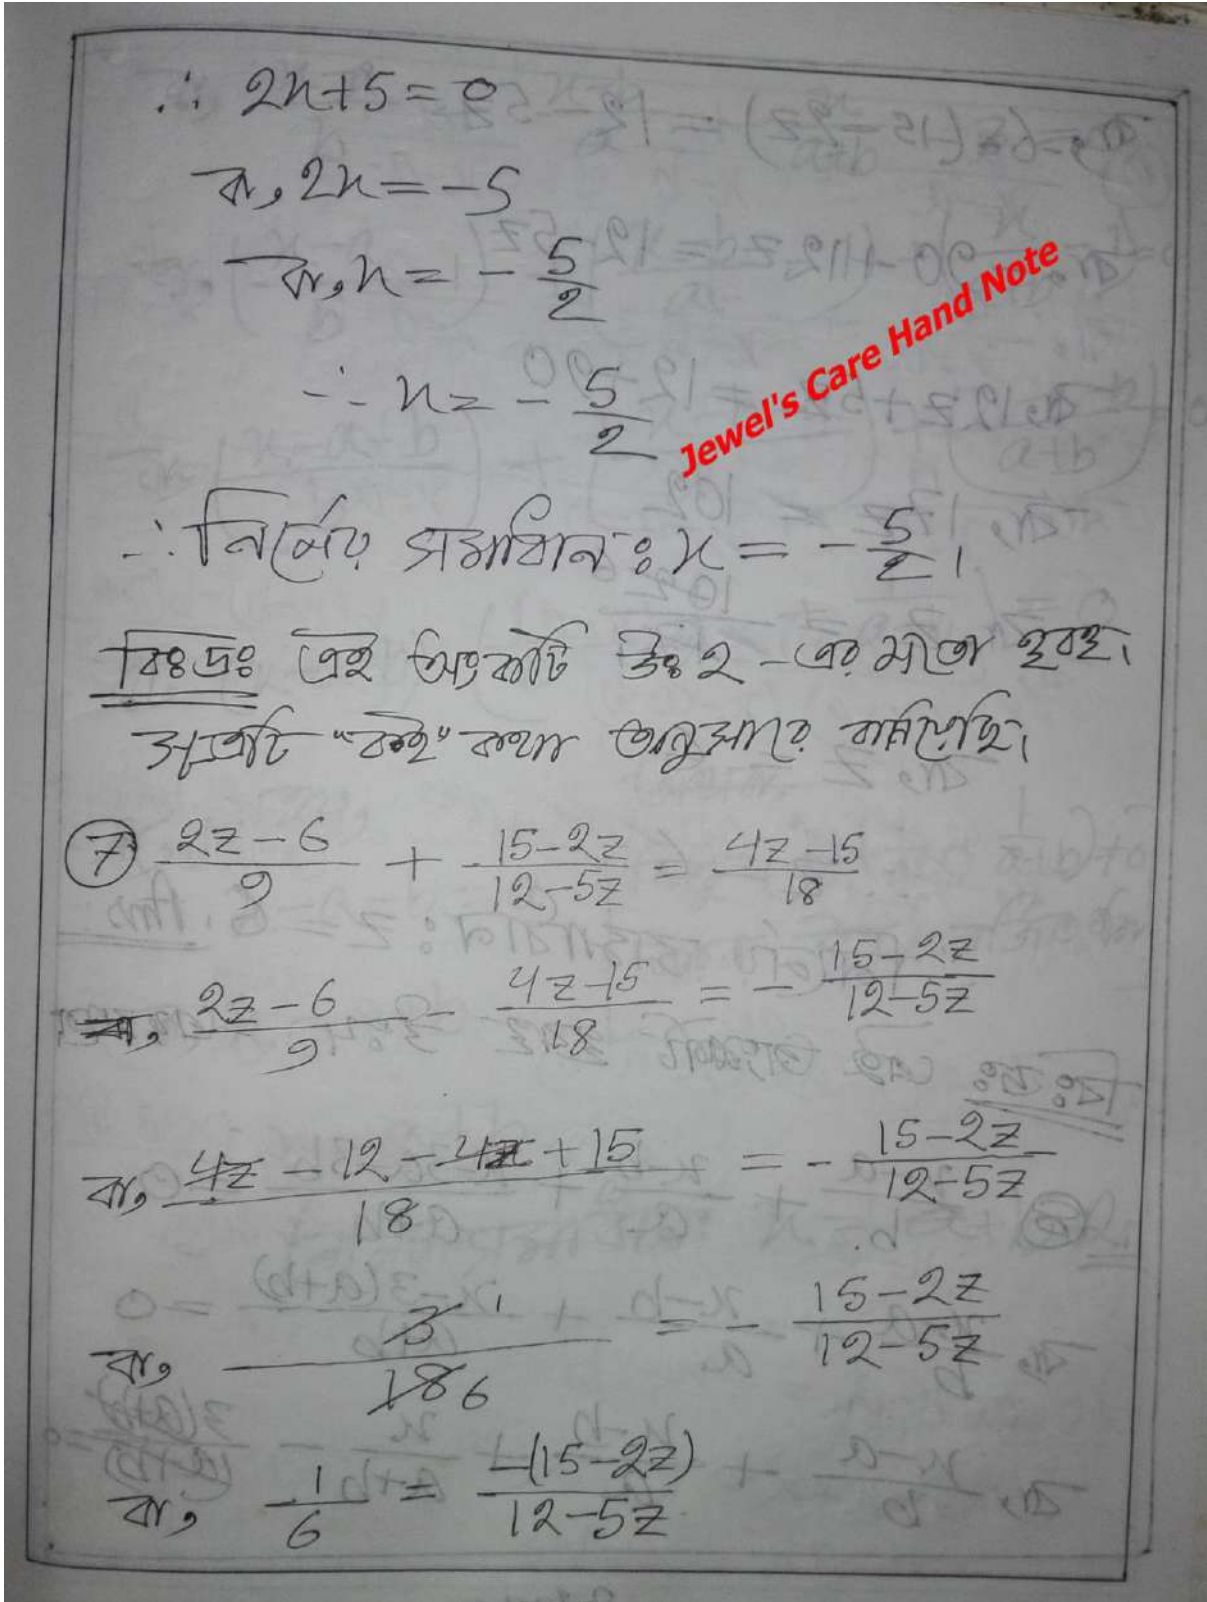 ∴ 2x+5 = 0
বা, 2x = -5
বা, x = - 5/2
∴ x = - 5/2
Jewel's Care Hand Note
∴ নির্ণেয় সমাধান : x = - 5/2।
বিঃদ্রঃ এই অংকটি উঃ ২ -এর মতো হুবহু।
সূত্রটি "বই" কথা অনুসারে বসিয়েছি।
7 (2z-6)/9 + (15-2z)/(12-5z) = (4z-15)/18
বা, (2z-6)/9 - (4z-15)/18 = - (15-2z)/(12-5z)
বা, (4z - 12 - 4z + 15)/18 = - (15-2z)/(12-5z)
বা, 3 1/18 6 = - (15-2z)/(12-5z)
বা, 1/6 = -(15-2z)/(12-5z)